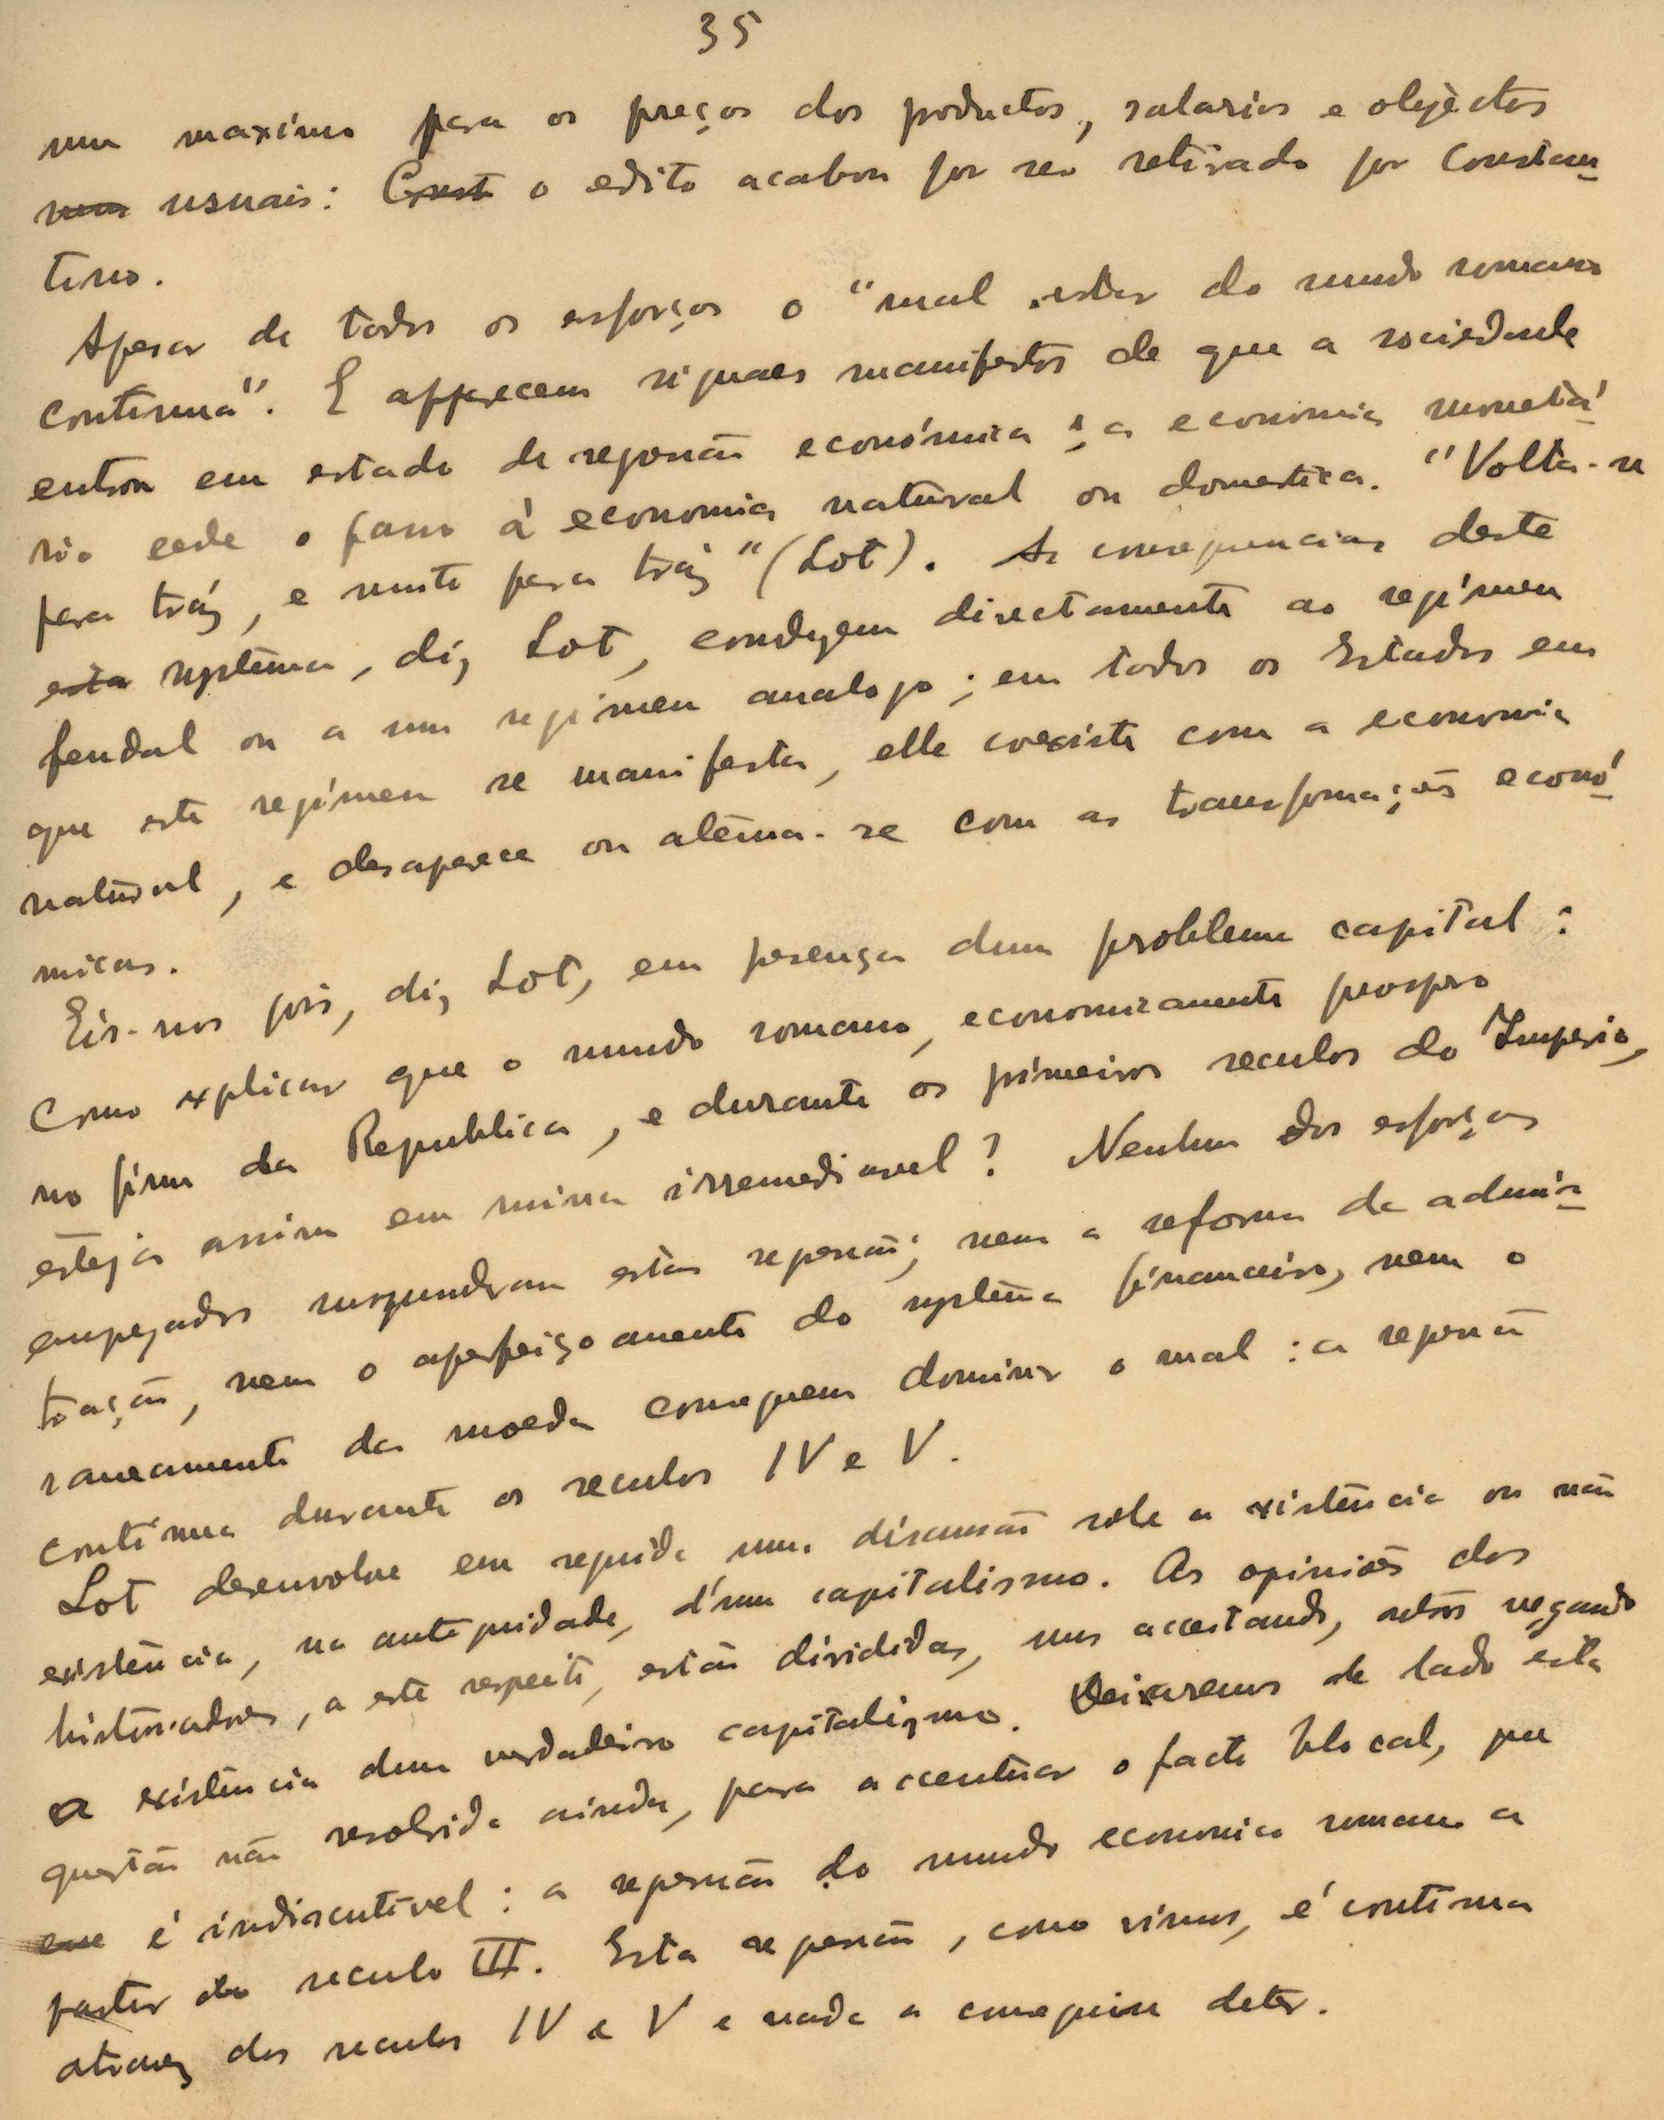 35
um maximo para os preços dos productos, salarios e objéctos
usuais: Const o edito acabou por ser retirado por Constan
tino.
Apesar de todos os esforços o "mal estar do mundo romano
continua". E apparecem signaes manifestos de que a sociedade
entrou em estado de regressão económica: a economia monetá
ria cede o passo á economia natural ou domestica. "Volta-se
para tráz, e muito para tráz" (Lot). As consequencias deste
esta systema, diz Lot, conduzem directamente ao regímen
feudal ou a um regímen analogo; em todos os Estados em
que este regímen se manifesta, elle coexiste com a economia
natural, e desaparece ou atenua-se com as transformações econó
micas.
Eis-nos pois, diz Lot, em presença dum problema capital:
Como explicar que o mundo romano, economicamente prospero
no fim da Republica, e durante os primeiros seculos do Imperio,
esteja assim em ruina irremediavel? Nenhum dos esforços
empregados suspenderam esta regressão; nem a reforma da admis
tração, nem o aperfeiçoamento do systema financeiro, nem o
saneamento da moeda conseguem dominar o mal: a regressão
continua durante os seculos IV e V.
Lot desenvolve em seguida uma discussão sobre a existência ou não
existência, na antiguidade, d'um capitalismo. As opiniões dos
historiadores, a este respeito, estão divididas, uns acceitando, outros negando
a existência dum verdadeiro capitalismo. Deixaremos de lado esta
questão não resolvida ainda, para accentuar o facto blocal, que
esse é indiscutível: a regressão do mundo economico romano a
partir do seculo III. Esta regressão, como vimos, é continua
atravez dos seculos IV e V e nada a conseguiu deter.